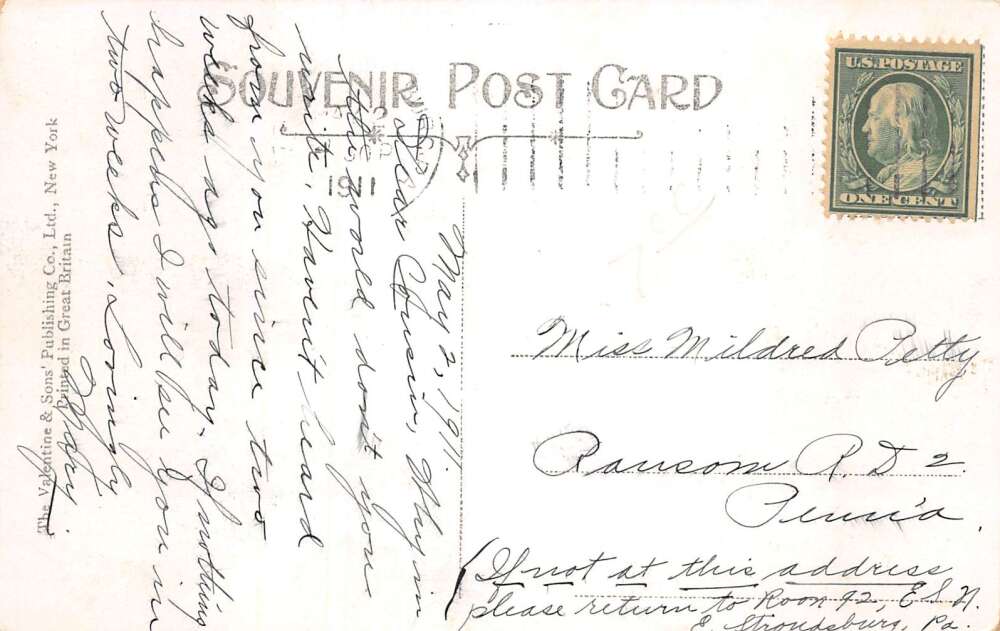 SOUVENIR POST CARD
1911
U.S. POSTAGE
ONE CENT
May 2, 1911.
Dear Cousin, Why in
the world don't you
write, Haven't heard
from you since two
weeks ago today. If nothing
happens I will see you in
two weeks. Lovingly
Mary.
The Valentine & Sons' Publishing Co., Ltd., New York
Printed in Great Britain
Miss Mildred Petty
Ransom R. D 2.
Penn'a.
(If not at this address
please return to Room 92, E. S. N.
E. Stroudsburg, Pa.